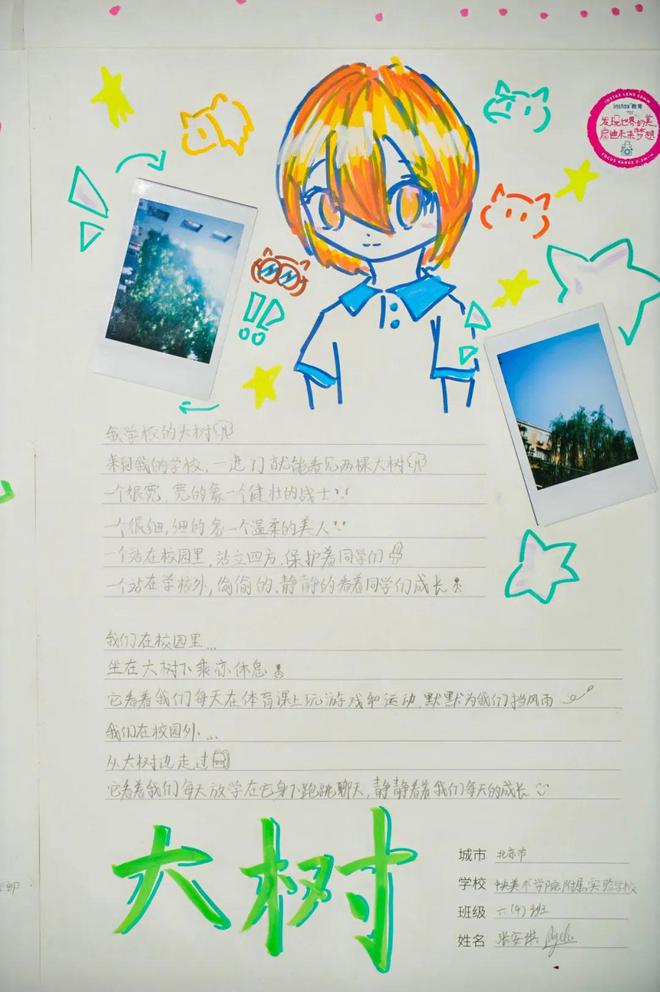 INSTAX LENS COMM
instax 教育
发现世界的美
启迪未来梦想
FOCUS RANGE 0.3M-∞
我学校的大树
来到我的学校，一进门就能看见两棵大树
一个很宽，宽的象一个健壮的战士
一个很细，细的象一个温柔的美人
一个站在校园里，站立四方，保护着同学们
一个站在学校外，偷偷的、静静的看着同学们成长
我们在校园里...
坐在大树下乘凉休息
它看着我们每天在体育课上玩游戏和运动，默默为我们挡风雨
我们在校园外...
从大树边走过
它看着我们每天放学在它身下跑跳聊天，静静看着我们每天的成长
大树
城市 北京市
学校 美术学院附属实验学校
班级 六(4)班
姓名